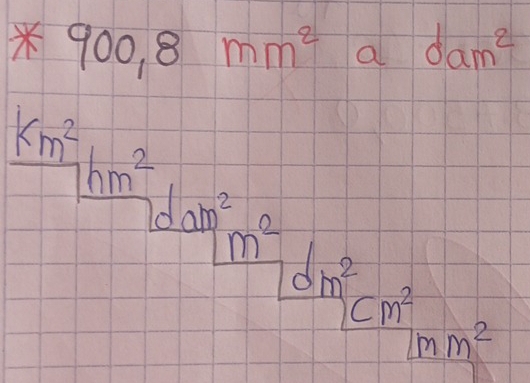 * 900,8 mm² a dam²
Km²
hm²
dam²
m²
dm²
cm²
mm²